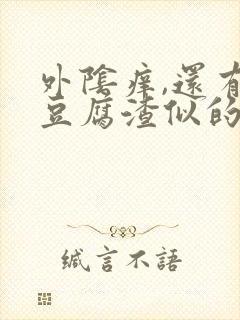 外陰痒,還有
豆腐渣似的
缄言不語